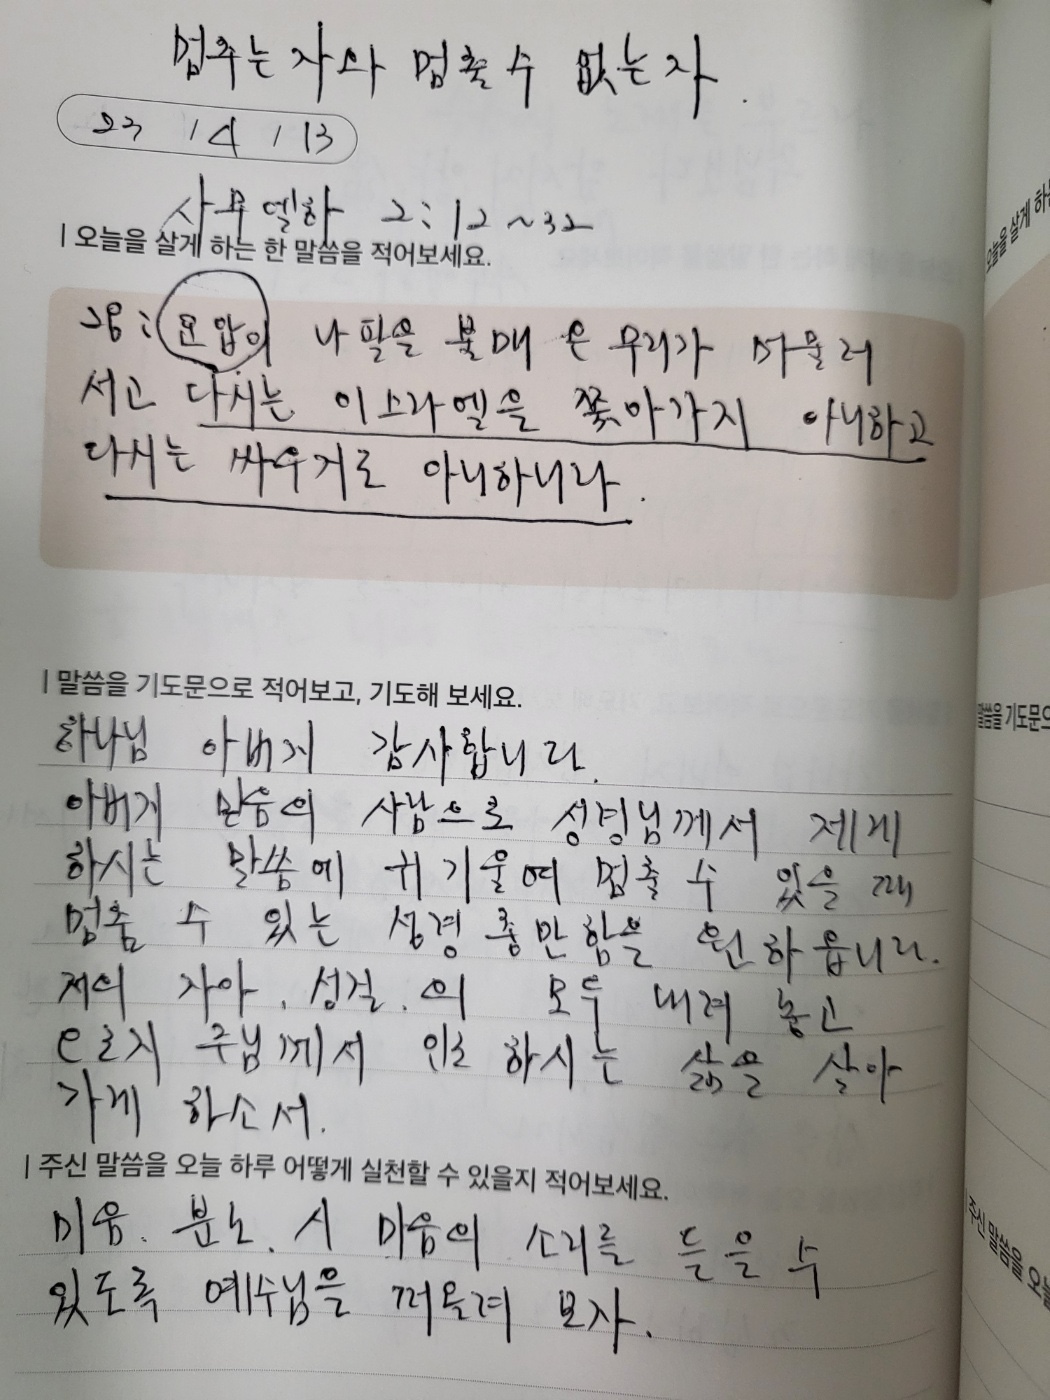 멈추는 자와 멈출 수 없는 자.
23 / 4 / 13
사무엘하 2:12~32
| 오늘을 살게 하는 한 말씀을 적어보세요.
28: 요압이 나팔을 불매 온 무리가 머물러
서고 다시는 이스라엘을 쫓아가지 아니하고
다시는 싸우거로 아니하니라.
| 말씀을 기도문으로 적어보고, 기도해 보세요.
하나님 아버지 감사합니다.
아버지 믿음의 사람으로 성령님께서 제게
하시는 말씀에 귀 기울여 멈출 수 있을 때
멈춤 수 있는 성령 충만함을 원하옵니다.
저의 자아, 성질, 의 모두 내려 놓고
오로지 주님께서 인도 하시는 삶을 살아
가게 하소서.
| 주신 말씀을 오늘 하루 어떻게 실천할 수 있을지 적어보세요.
미움. 분노. 시 마음의 소리를 듣을 수
있도록 예수님을 떠올려 보자.
오늘을 살게 하는
말씀을 기도문으
주신 말씀을 오늘